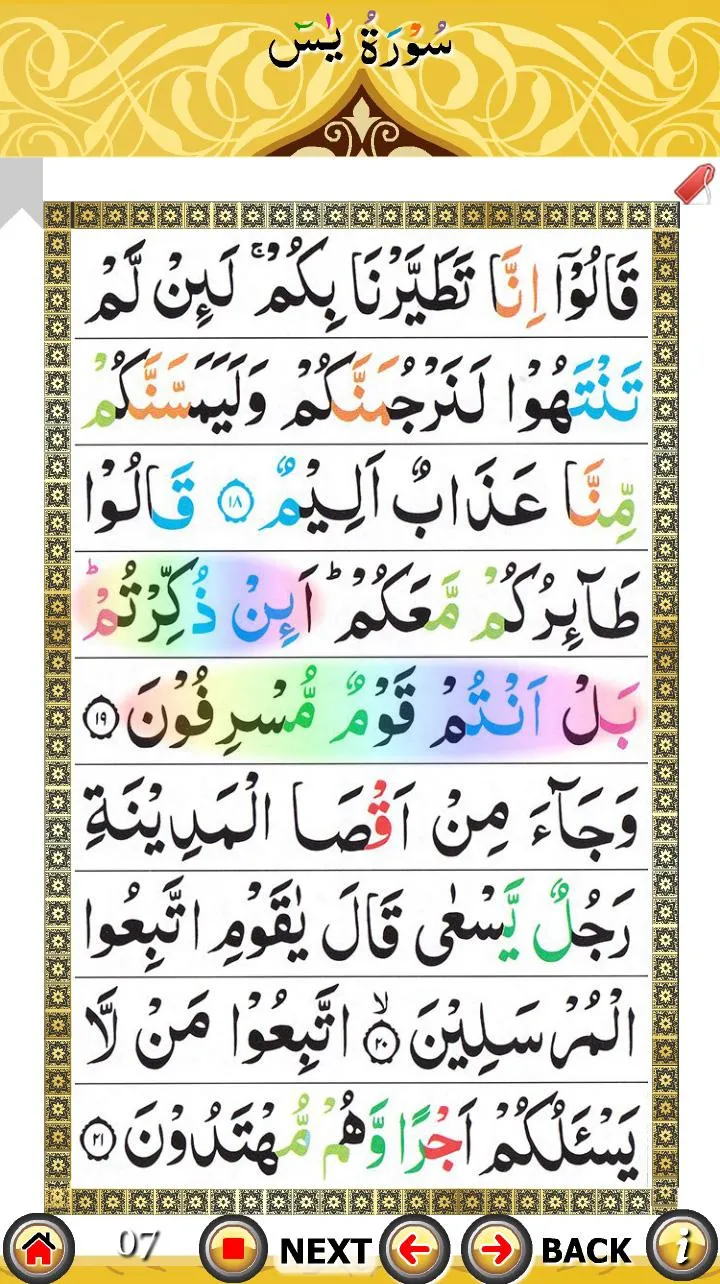 سُوْرَةُ يٰسٓ
قَالُوْۤا اِنَّا تَطَيَّرْنَا بِكُمْ ۚ لَىِٕنْ لَّمْ
تَنْتَهُوْا لَنَرْجُمَنَّكُمْ وَلَيَمَسَّنَّكُمْ
مِّنَّا عَذَابٌ اَلِيْمٌ ۱۸ قَالُوْا
طَآىِٕرُكُمْ مَّعَكُمْ ؕ اَىِٕنْ ذُكِّرْتُمْ ؕ
بَلْ اَنْتُمْ قَوْمٌ مُّسْرِفُوْنَ ۱۹
وَجَآءَ مِنْ اَقْصَا الْمَدِيْنَةِ
رَجُلٌ يَّسْعٰى قَالَ يٰقَوْمِ اتَّبِعُوا
الْمُرْسَلِيْنَ ۙ ۲۰ اتَّبِعُوْا مَنْ لَّا
يَسْـَٔلُكُمْ اَجْرًا وَّهُمْ مُّهْتَدُوْنَ ۲۱
07 NEXT BACK i